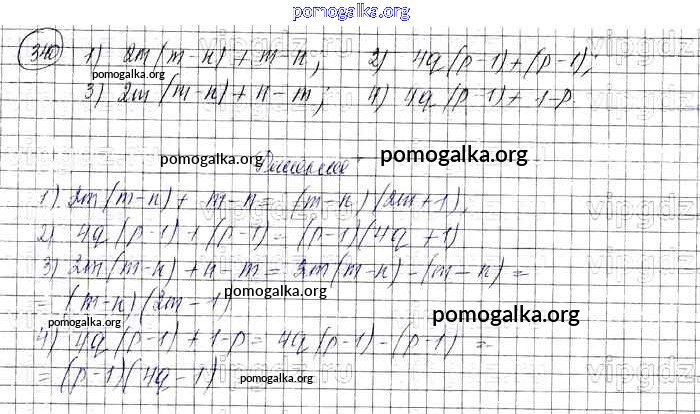 pomogalka.org
340 1) 2m(m-n)+m-n; 2) 4q(p-1)+(p-1);
pomogalka.org
3) 2m(m-n)+n-m; 4) 4q(p-1)+1-p.
pomogalka.org pomogalka.org
1) 2m(m-n)+m-n=(m-n)(2m+1),
2) 4q(p-1)+(p-1)=(p-1)(4q+1)
3) 2m(m-n)+n-m=2m(m-n)-(m-n)=
=(m-n)(2m-1)
pomogalka.org
pomogalka.org pomogalka.org
4) 4q(p-1)+1-p=4q(p-1)-(p-1)=
=(p-1)(4q-1)
pomogalka.org